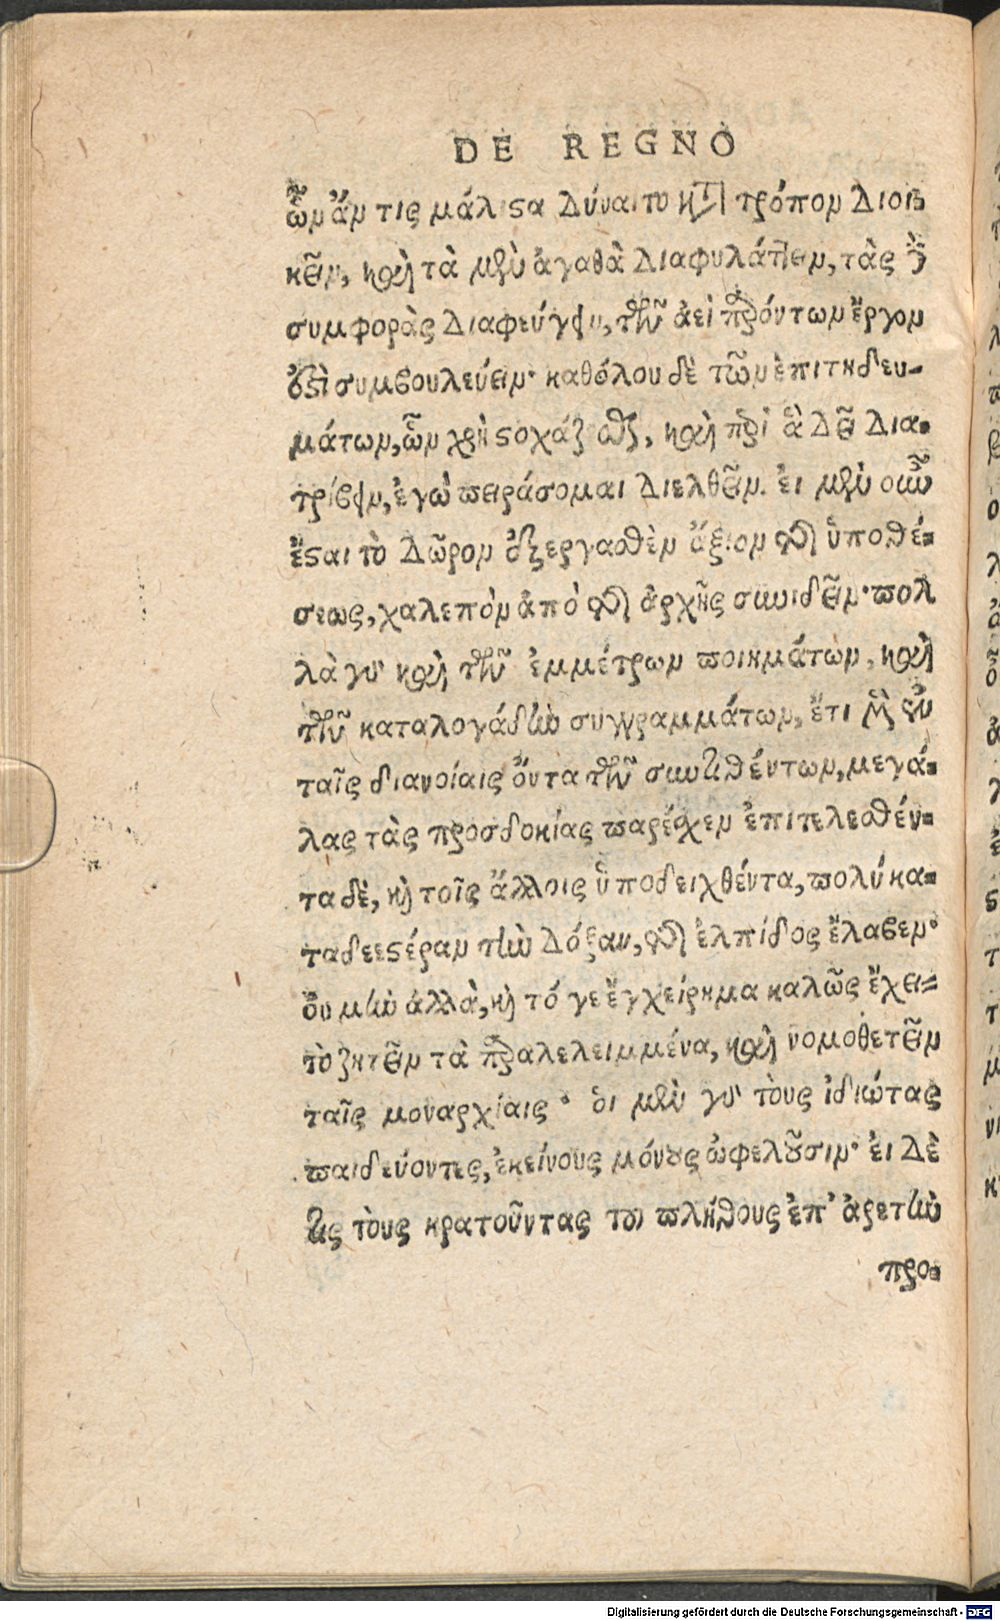 DE REGNO
ὧν ἄν τις μάλιστα δύναιτο κατὰ τρόπον διοι-
κεῖν, καὶ τὰ μὲν ἀγαθὰ διαφυλάττειν, τὰς δὲ
συμφορὰς διαφεύγειν, τῶν ἀεὶ παρόντων ἔργον
ἐστὶ συμβουλεύειν· καθόλου δὲ τῶν ἐπιτηδευ-
μάτων, ὧν χρὴ στοχάζεσθαι, καὶ περὶ ἃ δεῖ δια-
τρίβειν, ἐγὼ πειράσομαι διελθεῖν. εἰ μὲν οὖν
ἔσται τὸ δῶρον ἐξεργασθὲν ἄξιον τῆς ὑποθέ-
σεως, χαλεπὸν ἀπὸ τῆς ἀρχῆς συνιδεῖν· πολ
λὰ γὰρ καὶ τῶν ἐμμέτρων ποιημάτων, καὶ
τῶν καταλογάδην συγγραμμάτων, ἔτι μὲν ἐν
ταῖς διανοίαις ὄντα τῶν συντιθέντων, μεγά-
λας τὰς προσδοκίας παρέσχεν ἐπιτελεσθέν-
τα δὲ, καὶ τοῖς ἄλλοις ὑποδειχθέντα, πολὺ κα-
ταδεεστέραν τὴν δόξαν, τῆς ἐλπίδος ἔλαβεν·
οὐ μὴν ἀλλὰ, καὶ τό γε ἐγχείρημα καλῶς ἔχει-
τὸ ζητεῖν τὰ παραλελειμμένα, καὶ νομοθετεῖν
ταῖς μοναρχίαις· οἱ μὲν γὰρ τοὺς ἰδιώτας
παιδεύοντες, ἐκείνους μόνους ὠφελοῦσιν· εἰ δέ
τις τοὺς κρατοῦντας τοῦ πλήθους ἐπ' ἀρετὴν
προ-
Digitalisierung gefördert durch die Deutsche Forschungsgemeinschaft - DFG